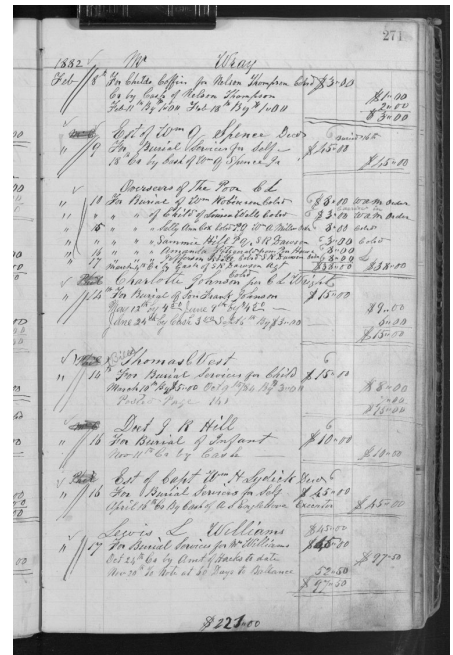 271
1882 Mr Wray
Feb 8th For Childs Coffin for Nelson Thompson Cold $3-00
Cr by Cash of Nelson Thompson $1-00
Feb 11th By $1-00 Feb 18th By $1-00 2-00
$3-00
Est of Wm J Spence Decd
" 9 For Burial Services for Self $45-00
18th Cr by Est of Wm J Spence Jr $45-00
Overseers of The Poor C L
" 10 For Burial of Wm Robinson Cold $8-00 W A M Order
" " " of Child of Cold $3-00 W A M Order
" 15 " " " Sally Ann Cox Cold 8-00 Cold
" " " " Sammie Hill S R Dawson 3-00 Cold
" 16 " " 8-00
" 17 " Cold S R Dawson 8-00
March 4th Cr by Cash of S R Dawson Agt $38-00 $38-00
Charlotte Johnson for C L Wright
" 14 For Burial of Son Frank Johnson $15-00
May 13th by $4.00 June 7th by $5.00 $9-00
June 24th by Cash By $3-00 6-00
$15-00
Thomas West
" 14 For Burial Services for Child $15-00
March 10th By $5-00 Oct By 3-00 $8-00
Posted Page 141 7-00
$15-00
Doct J R Hill
" 16 For Burial of Infant $10-00
Nov 11th Cr by Cash $10-00
Est of Capt Wm H Lydick Decd
" 16 For Burial Services for Self $45-00
April 15th Cr By Cash of A S Singleton Executor $45-00
Lewis L Williams $45-00
" 17 For Burial Services for Mr Williams
Oct 24th Cr by Amt of Hacks to date $97-50
Nov 20th To Note at 60 Days to Ballance 52-50
$97-50
$221-00